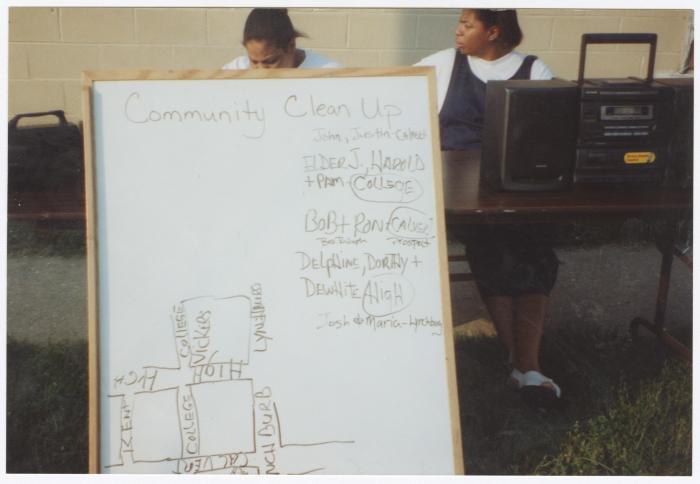 Community Clean Up
John, Justin - Calvert
ELDER J, HAROLD
+ PAM - COLLEGE
BOB + RON - CALVERT
Prospect
DELPHINE, DORTHY +
DEWHITE HIGH
Josh & Maria - Lynchburg
COLLEGE
VICKERS
LYNCHBURG
HIGH
HIGH
KENT
COLLEGE
LYNCHBURB
CALVERT